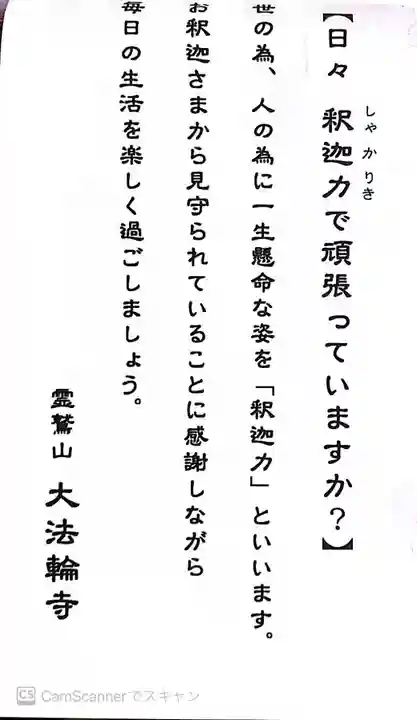 【日々 釈迦力で頑張っていますか?】
しゃかりき
世の為、人の為に一生懸命な姿を「釈迦力」といいます。
お釈迦さまから見守られていることに感謝しながら
毎日の生活を楽しく過ごしましょう。
霊鷲山 大法輪寺
CS CamScannerでスキャン